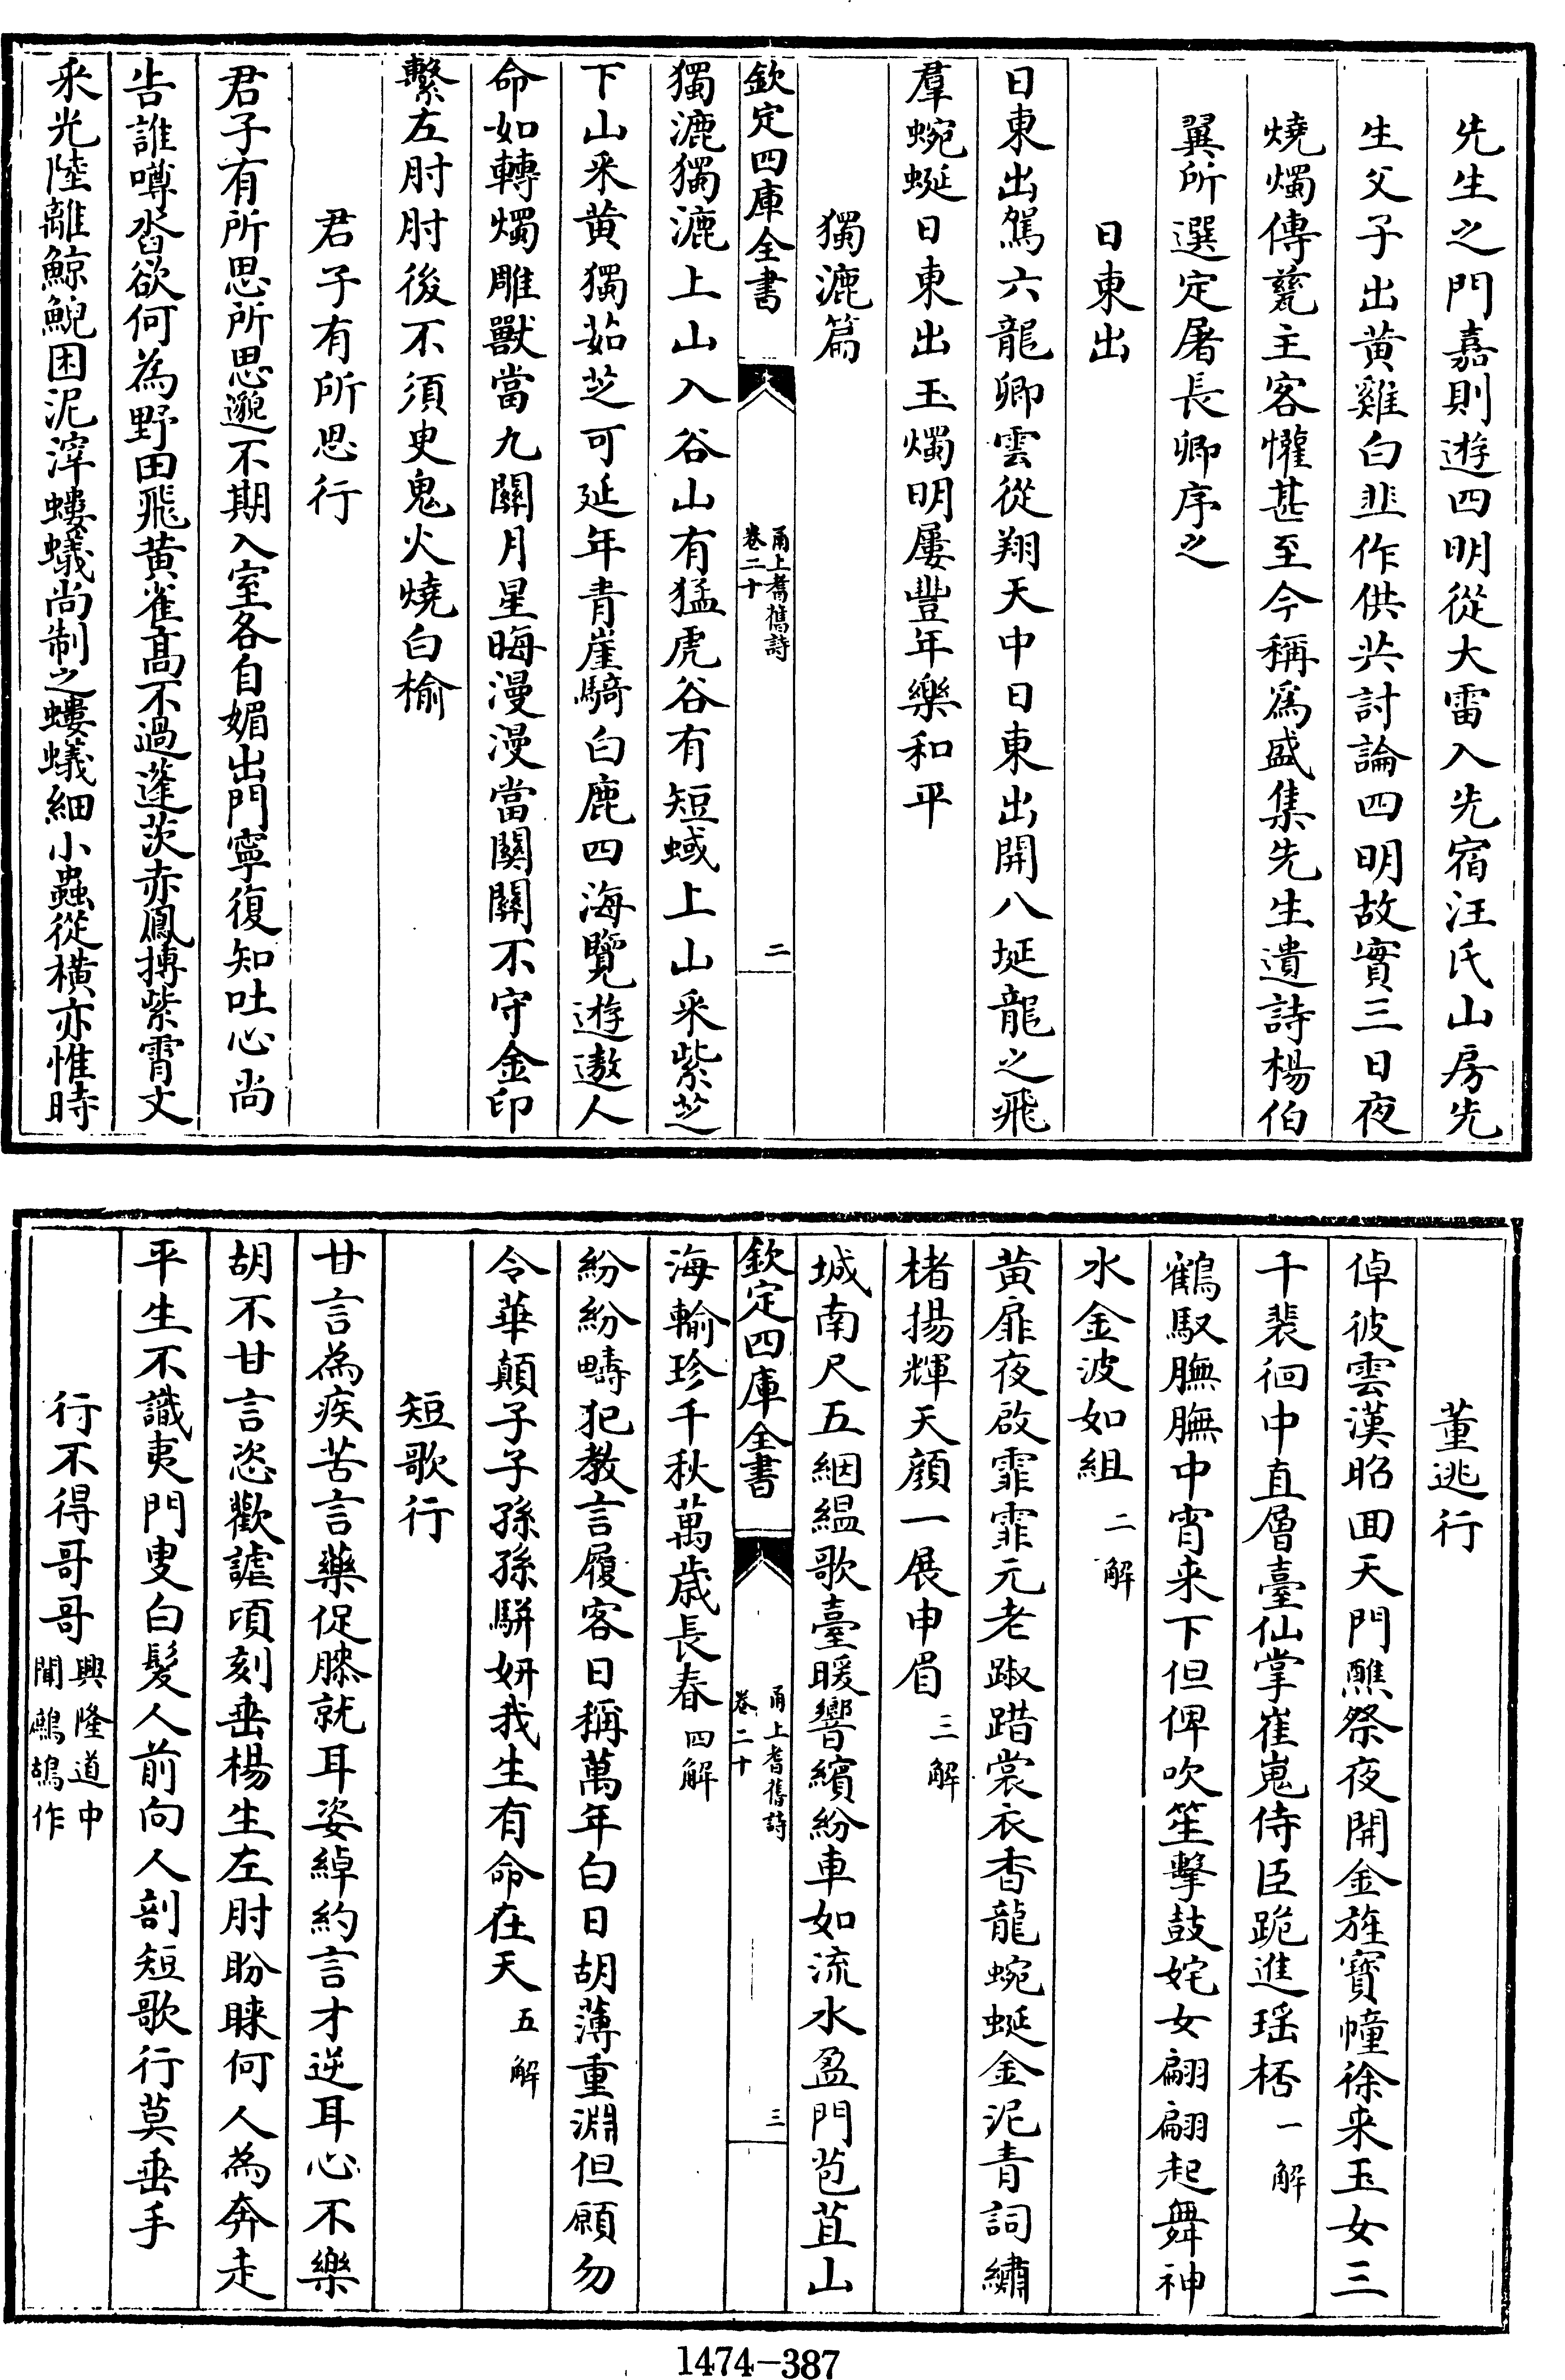 先生之門嘉則遊四明從大雷入先宿汪氏山房先
生父子出黄雞白韭作供共討論四明故實三日夜
燒燭傳甍主客懽甚至今稱為盛集先生遺詩楊伯
翼所選定屠長卿序之
日東出
日東出駕六龍卿雲從翔天中日東出開八埏龍之飛
羣蜿蜒日東出玉燭明屢豐年樂和平
獨漉篇
欽定四庫全書
甬上耆舊詩
卷二十
二
獨漉獨漉上山入谷山有猛虎谷有短蜮上山采紫芝
下山采黄獨茹芝可延年青崖騎白鹿四海覽遊遨人
命如轉燭雕獸當九關月星晦漫漫當關關不守金印
繫左肘肘後不須臾鬼火燒白榆
君子有所思行
君子有所思所思邈不期入室各自媚出門寧復知吐心尚
告誰噂沓欲何為野田飛黄雀髙不過蓬茨赤鳳摶紫霄文
采光陸離鯨鯢困泥滓螻蟻尚制之螻蟻細小蟲從横亦惟時
董逃行
倬彼雲漢昭囬天門醮祭夜開金旌寶幢徐来玉女三
千裴徊中直層臺仙掌崔嵬侍臣跪進瑶桮一解
鶴馭膴膴中宵来下但俾吹笙擊鼓姹女翩翩起舞神
水金波如組二解
黄扉夜啟霏霏元老踧踖裳衣杳龍蜿蜒金泥青詞繡
楮揚輝天顔一展申眉三解
城南尺五絪緼歌臺暖響繽紛車如流水盈門苞苴山
欽定四庫全書
甬上耆舊詩
卷二十
三
海輸珍千秋萬歳長春四解
紛紛疇犯教言履客日稱萬年白日胡薄重淵但願勿
令華顛子子孫孫駢妍我生有命在天五解
短歌行
甘言為疾苦言藥促膝就耳姿綽約言才逆耳心不樂
胡不甘言恣歡謔頃刻垂楊生左肘盼睞何人為奔走
平生不識夷門叟白髮人前向人剖短歌行莫垂手
行不得哥哥興隆道中聞鷓鴣作
1474-387